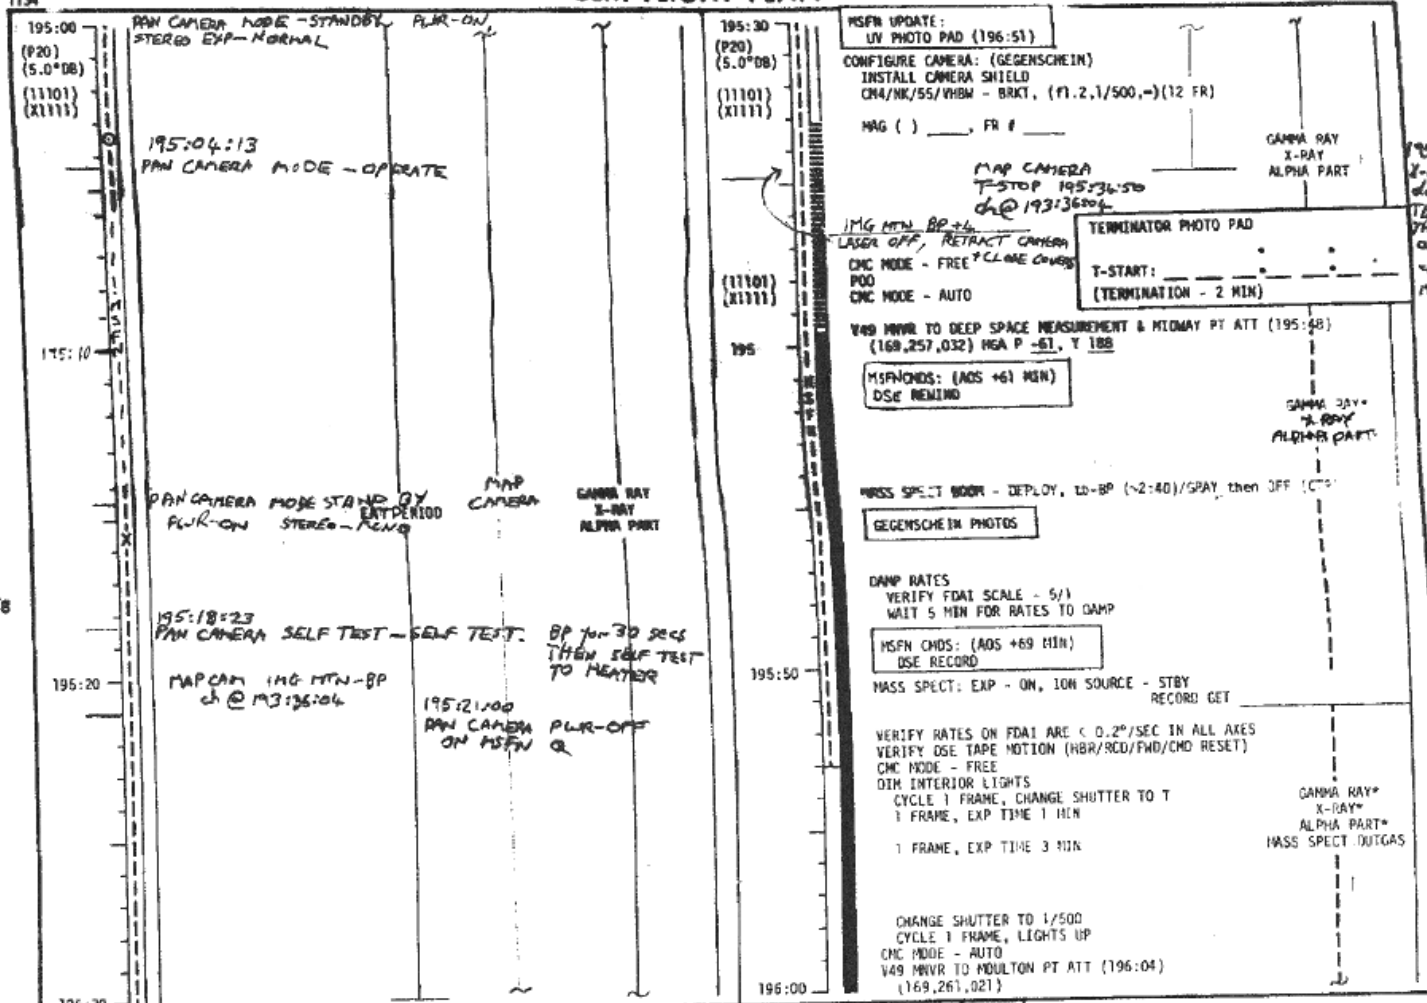 1134
195:00
(P20)
(5.0°DB)
(11101)
(X1111)
PAN CAMERA MODE - STANDBY PWR-ON,
STEREO EXP - NORMAL
195:04:13
PAN CAMERA MODE - OPERATE
195:10
PAN CAMERA MODE STAND BY
PWR-ON STEREO-
EAT PERIOD
MAP
CAMERA
GAMMA RAY
X-RAY
ALPHA PART
195:18:23
PAN CAMERA SELF TEST - SELF TEST. BP for 30 secs
THEN SELF TEST
TO HEATER
195:20
MAP CAM IMG MTN-BP
ch @ 193:36:04
195:21:00
PAN CAMERA PWR-OFF
ON MSFN Q
195:30
(P20)
(5.0°DB)
(11101)
(X1111)
MSFN UPDATE:
UV PHOTO PAD (196:51)
CONFIGURE CAMERA: (GEGENSCHEIN)
INSTALL CAMERA SHIELD
CM4/NK/55/VHBW - BRKT, (f1.2,1/500,∞)(12 FR)
MAG ( ) ____, FR # ____
GAMMA RAY
X-RAY
ALPHA PART
MAP CAMERA
T-STOP 195:36:50
ch @ 193:36:04
IMG MTN BP +4
LASER OFF, RETRACT CAMERA
+ CLOSE COVERS
CMC MODE - FREE
P00
CMC MODE - AUTO
(11101)
(X1111)
TERMINATOR PHOTO PAD
T-START: __ __ __ : __ __ : __ __
(TERMINATION - 2 MIN)
V49 MNVR TO DEEP SPACE MEASUREMENT & MIDWAY PT ATT (195:48)
(169,257,032) HGA P -61, Y 188
195
MSFN CMDS: (AOS +61 MIN)
DSE REWIND
GAMMA RAY*
X-RAY
ALPHA PART
MASS SPECT BOOM - DEPLOY, tb-BP (~2:40)/GRAY then OFF (CTR)
GEGENSCHEIN PHOTOS
DAMP RATES
VERIFY FDAI SCALE - 5/1
WAIT 5 MIN FOR RATES TO DAMP
MSFN CMDS: (AOS +69 MIN)
DSE RECORD
195:50
MASS SPECT: EXP - ON, ION SOURCE - STBY
RECORD GET ____
VERIFY RATES ON FDAI ARE < 0.2°/SEC IN ALL AXES
VERIFY DSE TAPE MOTION (HBR/RCD/FWD/CMD RESET)
CMC MODE - FREE
DIM INTERIOR LIGHTS
CYCLE 1 FRAME, CHANGE SHUTTER TO T
1 FRAME, EXP TIME 1 MIN
1 FRAME, EXP TIME 3 MIN
GAMMA RAY*
X-RAY*
ALPHA PART*
MASS SPECT OUTGAS
CHANGE SHUTTER TO 1/500
CYCLE 1 FRAME, LIGHTS UP
CMC MODE - AUTO
V49 MNVR TO MOULTON PT ATT (196:04)
(169,261,021)
196:00